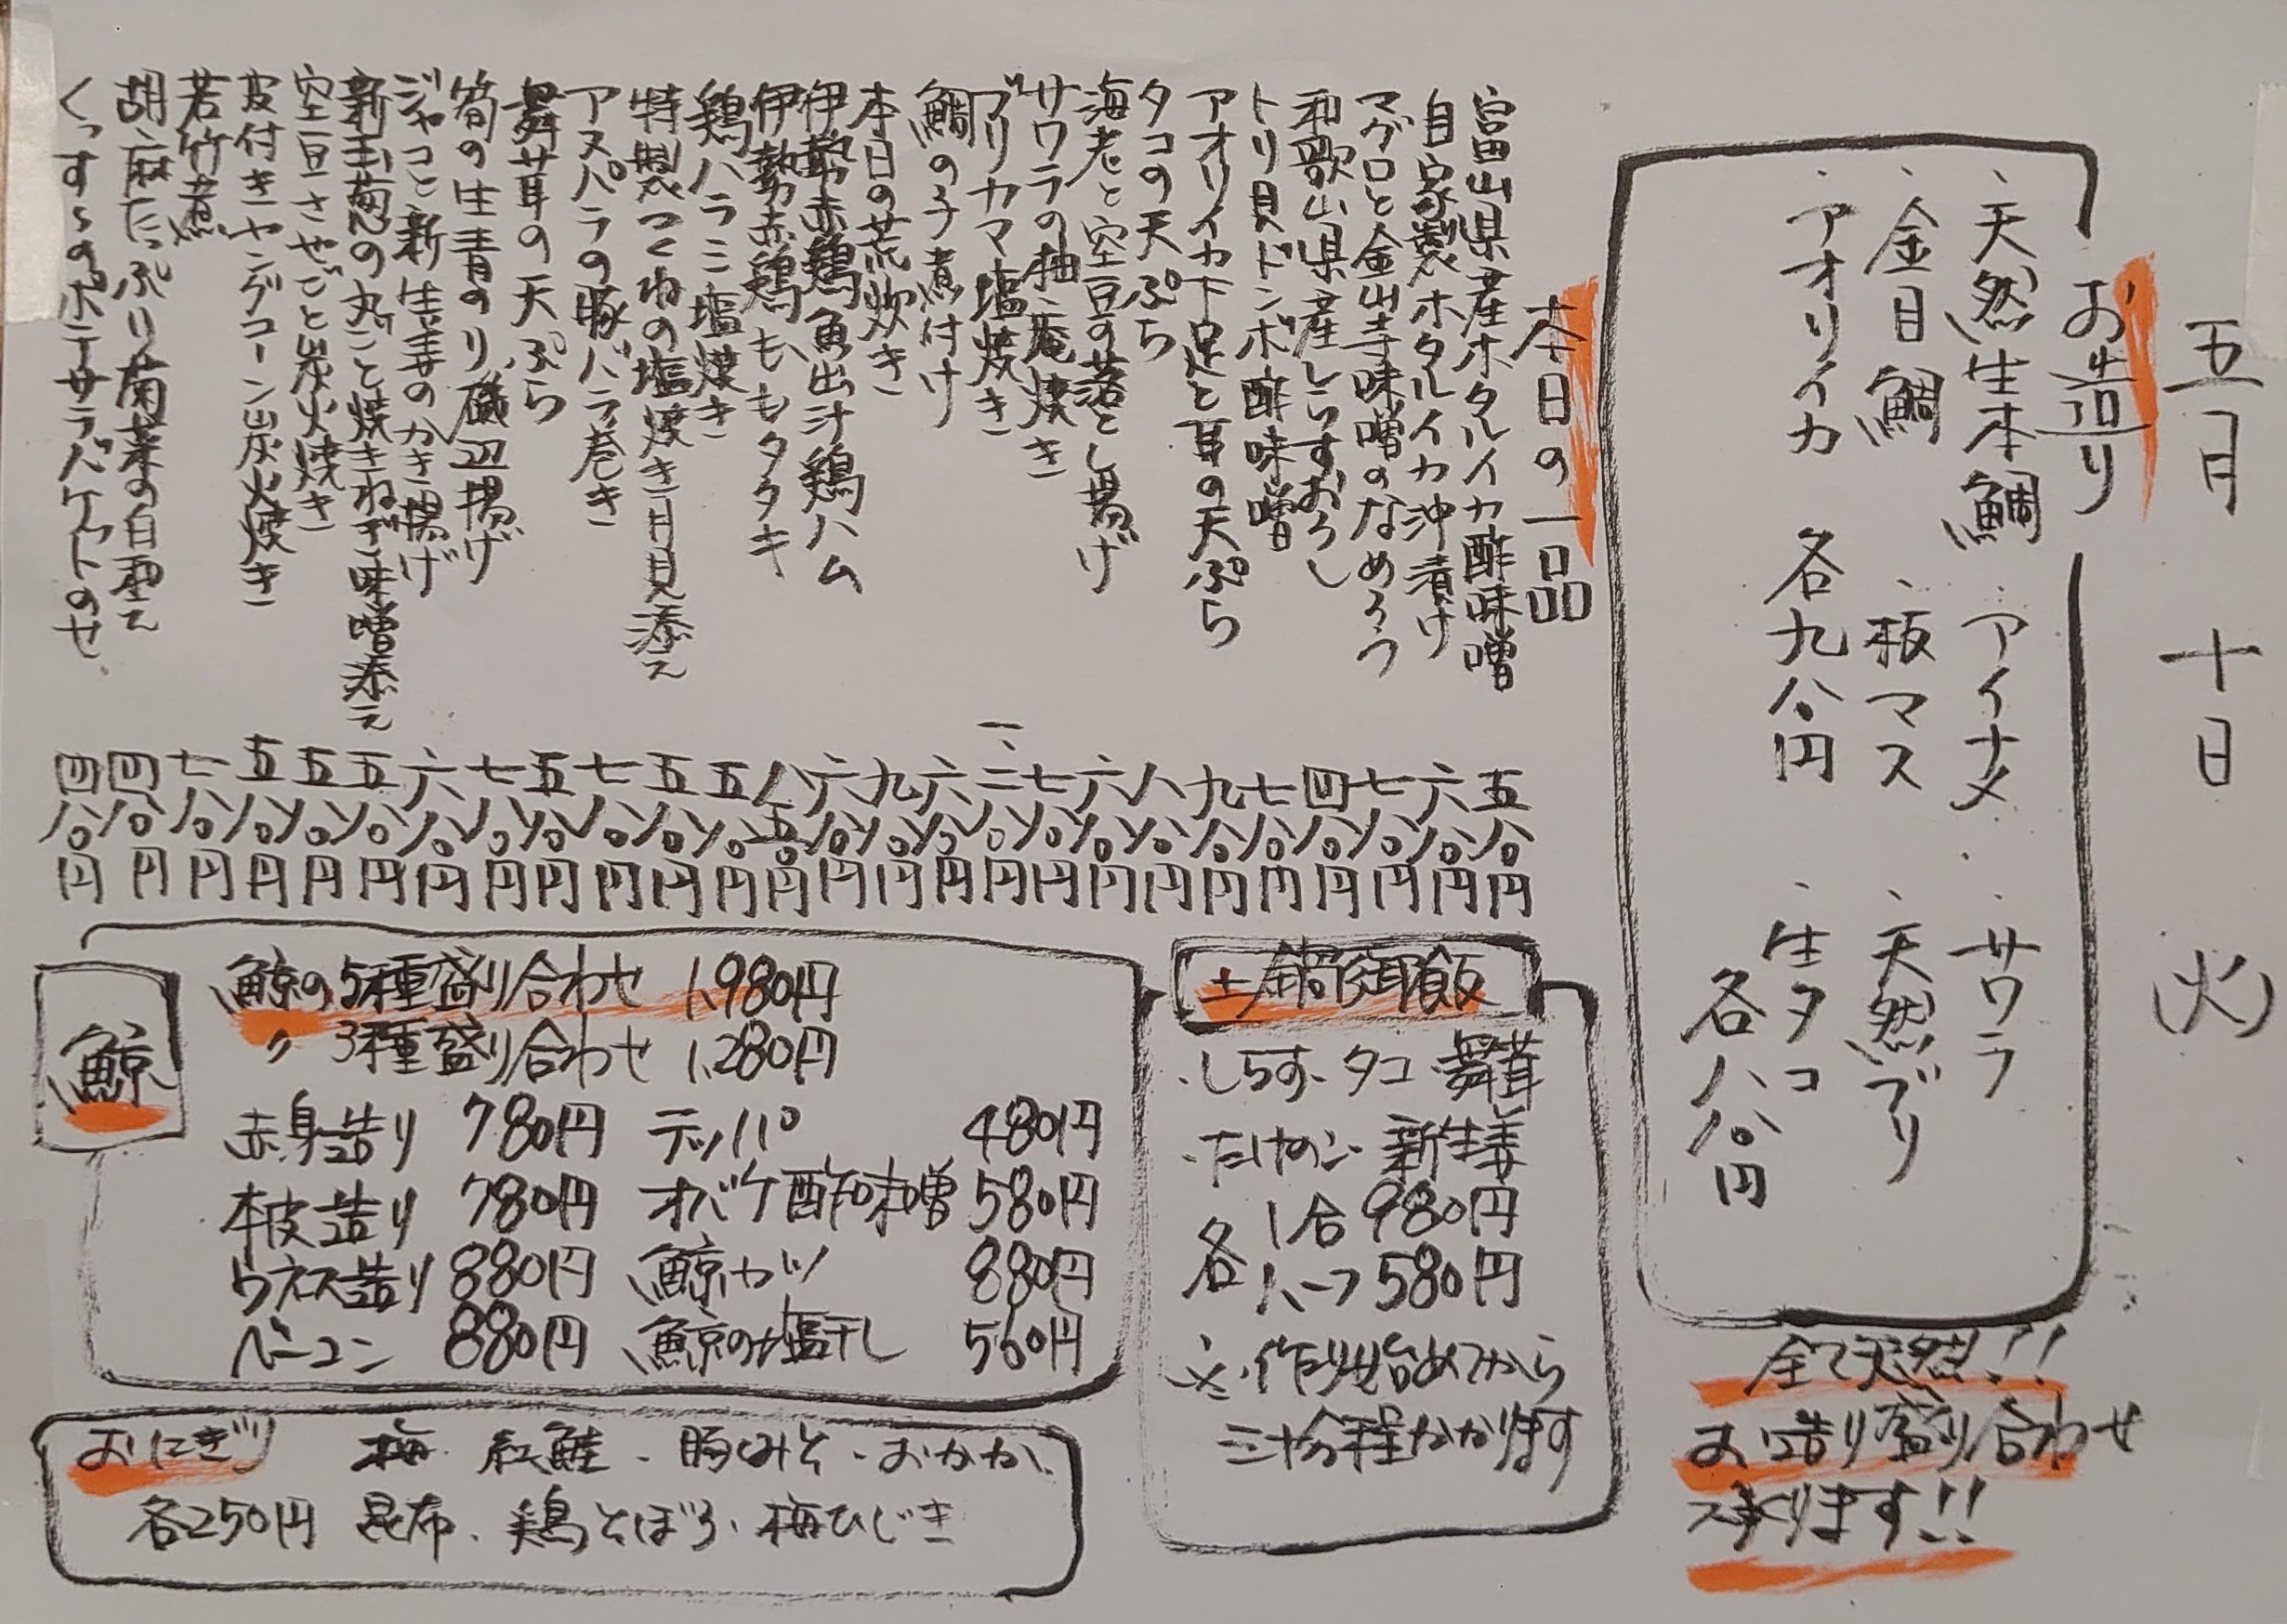 五月十日(火)
お造り
・天然生本鯛 ・アイナメ ・サワラ
・金目鯛 ・板マス ・天然ブリ
・アオリイカ 各九八〇円 ・生タコ 各八八〇円
全て天然!!
お造り盛り合わせ
承ります!!
本日の一品
富山県産ホタルイカ酢味噌 五八〇円
自家製ホタルイカ沖漬け 六八〇円
マグロと金山寺味噌のなめろう 七八〇円
和歌山県産しらすおろし 四八〇円
トリ貝ドンボ酢味噌 七八〇円
アオリイカ下足と耳の天ぷら 九八〇円
タコの天ぷら 八八〇円
海老と空豆の落とし揚げ 六八〇円
サワラの柚庵焼き 七八〇円
ブリカマ塩焼き 一、二八〇円
鯛の子煮付け 六八〇円
本日の荒炊き 九八〇円
伊勢赤鶏魚出汁鶏ハム 六八〇円
伊勢赤鶏ももタタキ 八五〇円
鶏ハラミ塩焼き 五八〇円
特製つくねの塩焼き月見添え 五八〇円
アスパラの豚バラ巻き 七八〇円
舞茸の天ぷら 五八〇円
筍の生青のり磯辺揚げ 七八〇円
ジャコと新生姜のかき揚げ 六八〇円
新玉葱の丸ごと焼きねぎ味噌添え 五八〇円
空豆さやごと炭火焼き 五八〇円
皮付きヤングコーン炭火焼き 五八〇円
若竹煮 七八〇円
胡麻たっぷり菊菜の白和え 四八〇円
くっすぅのポテサラバケットのせ 四八〇円
土鍋御飯
・しらす・タコ・舞茸
・たけのこ・新生姜
各 1合 980円
各 ハーフ 580円
※作り始めてから
三十分程かかります
鯨
鯨の5種盛り合わせ 1,980円
〃 3種盛り合わせ 1,280円
赤身造り 780円 テッパ 480円
本皮造り 780円 オバケ酢味噌 580円
ウネス造り 880円 鯨カツ 880円
ベーコン 880円 鯨の塩干し 560円
おにぎり 梅・紅鮭・豚しみそ・おかか、
各250円 昆布、鶏そぼろ、梅ひじき